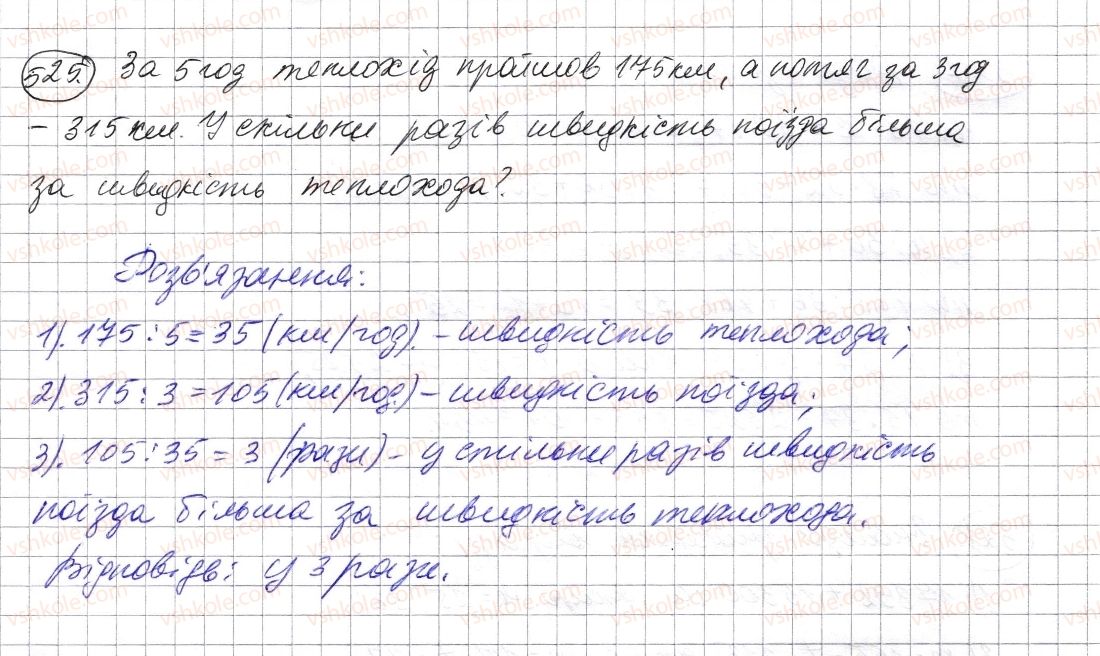 525. За 5 год теплохід пройшов 175 км, а потяг за 3 год
– 315 км. У скільки разів швидкість поїзда більша
за швидкість теплохода?
Розв'язання:
1). 175 : 5 = 35 (км/год) – швидкість теплохода;
2). 315 : 3 = 105 (км/год) – швидкість поїзда;
3). 105 : 35 = 3 (рази) – у стільки разів швидкість
поїзда більша за швидкість теплохода.
Відповідь: у 3 рази.
vshkole.com